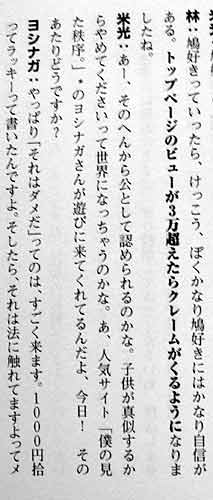 林：鳩好きっていったら、けっこう、ぼくかなり鳩好きにはかなり自信が
ある。トップページのビューが3万超えたらクレームがくるようになりま
したね。
米光：あー、そのへんから公として認められるのかな。子供が真似するか
らやめてくださいって世界になっちゃうのかな。あ、人気サイト「僕の見
た秩序。」*のヨシナガさんが遊びに来てくれてるんだよ、今日！　その
あたりどうですか？
ヨシナガ：やっぱり「それはダメだ」ってのは、すごく来ます。1000円拾
ってラッキーって書いたんですよ。そしたら、それは法に触れてますよってメ